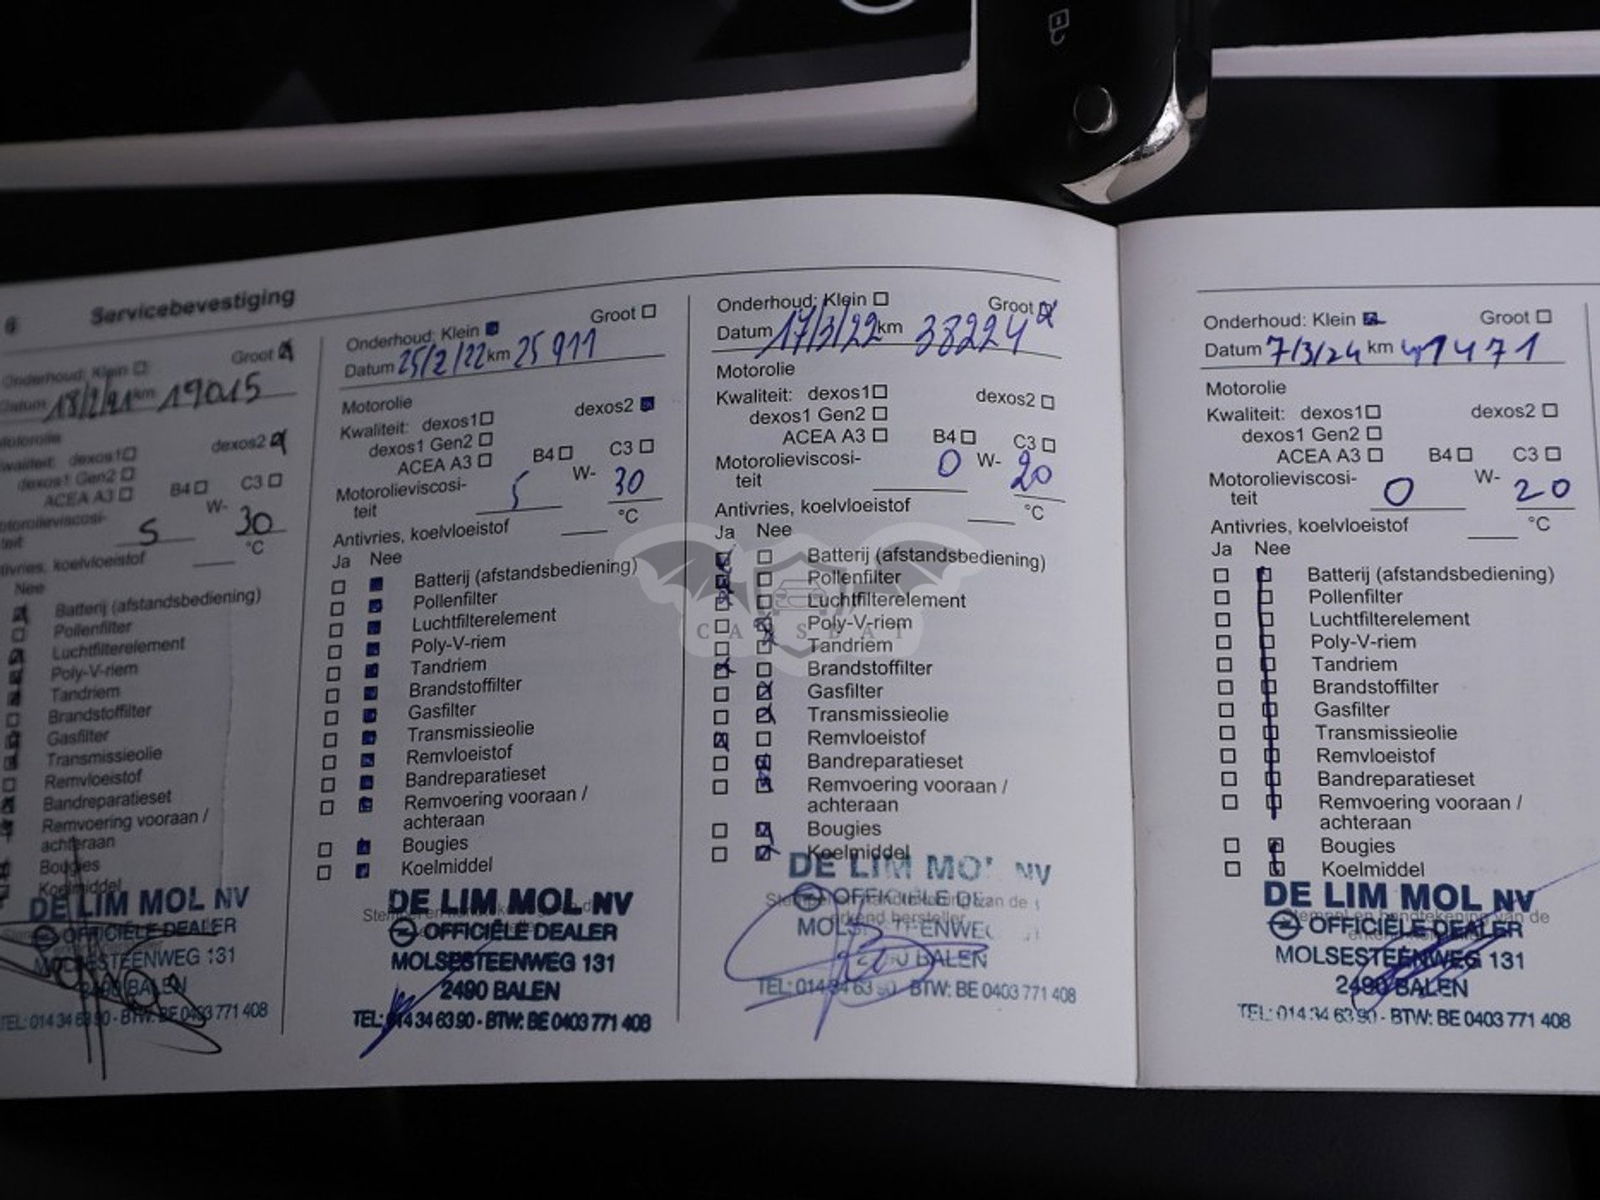 6 Servicebevestiging
Onderhoud: Klein Groot
Datum 18/2/21 km 19015
Motorolie
Kwaliteit: dexos1 dexos2
dexos1 Gen2
ACEA A3 B4 C3
Motorolieviscosi- W-
teit 5 30
Antivries, koelvloeistof °C
Nee
Batterij (afstandsbediening)
Pollenfilter
Luchtfilterelement
Poly-V-riem
Tandriem
Brandstoffilter
Gasfilter
Transmissieolie
Remvloeistof
Bandreparatieset
Remvoering vooraan /
achteraan
Bougies
Koelmiddel
DE LIM MOL NV
OFFICIËLE DEALER
MOLSESTEENWEG 131
2490 BALEN
TEL: 014 34 63 90 - BTW: BE 0403 771 408
Onderhoud: Klein Groot
Datum 25/2/22 km 25 911
Motorolie
Kwaliteit: dexos1 dexos2
dexos1 Gen2
ACEA A3 B4 C3
Motorolieviscosi- W-
teit 5 30
Antivries, koelvloeistof °C
Ja Nee
Batterij (afstandsbediening)
Pollenfilter
Luchtfilterelement
Poly-V-riem
Tandriem
Brandstoffilter
Gasfilter
Transmissieolie
Remvloeistof
Bandreparatieset
Remvoering vooraan /
achteraan
Bougies
Koelmiddel
DE LIM MOL NV
OFFICIËLE DEALER
MOLSESTEENWEG 131
2490 BALEN
TEL: 014 34 63 90 - BTW: BE 0403 771 408
Onderhoud: Klein Groot
Datum 17/3/22 km 38224
Motorolie
Kwaliteit: dexos1 dexos2
dexos1 Gen2
ACEA A3 B4 C3
Motorolieviscosi- W-
teit 0 20
Antivries, koelvloeistof °C
Ja Nee
Batterij (afstandsbediening)
Pollenfilter
Luchtfilterelement
Poly-V-riem
Tandriem
Brandstoffilter
Gasfilter
Transmissieolie
Remvloeistof
Bandreparatieset
Remvoering vooraan /
achteraan
Bougies
Koelmiddel
DE LIM MOL NV
OFFICIËLE
erkend hersteller
BALEN
TEL: 014 34 63 90 - BTW: BE 0403 771 408
Onderhoud: Klein Groot
Datum 7/3/24 km 41471
Motorolie
Kwaliteit: dexos1 dexos2
dexos1 Gen2
ACEA A3 B4 C3
Motorolieviscosi- W-
teit 0 20
Antivries, koelvloeistof °C
Ja Nee
Batterij (afstandsbediening)
Pollenfilter
Luchtfilterelement
Poly-V-riem
Tandriem
Brandstoffilter
Gasfilter
Transmissieolie
Remvloeistof
Bandreparatieset
Remvoering vooraan /
achteraan
Bougies
Koelmiddel
DE LIM MOL NV
Stempel en handtekening van de
OFFICIËLE DEALER
MOLSESTEENWEG 131
2490 BALEN
TEL: 014 34 63 90 - BTW: BE 0403 771 408